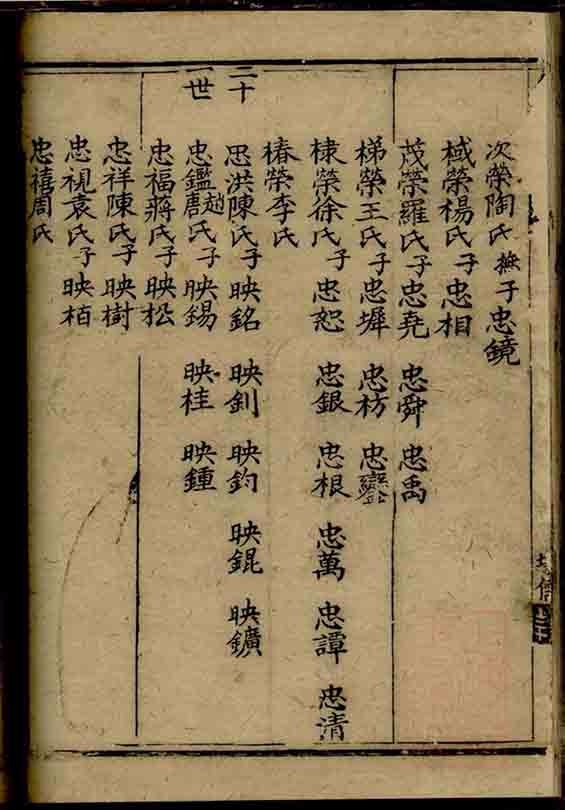 次榮陶氏撫子忠鏡
棫榮楊氏子忠相
茂榮羅氏子忠堯 忠舜 忠禹
梯榮王氏子忠墀 忠枋 忠鑾
棣榮徐氏子忠恕 忠銀 忠根 忠萬 忠譚 忠清
椿榮李氏
二十一世
忠洪陳氏子映銘 映釗 映鈞 映錕 映鑛
忠鑑趙唐氏子映錫 映桂 映鍾
忠福蔣氏子映松
忠祥陳氏子映樹
忠視袁氏子映栢
忠禧周氏